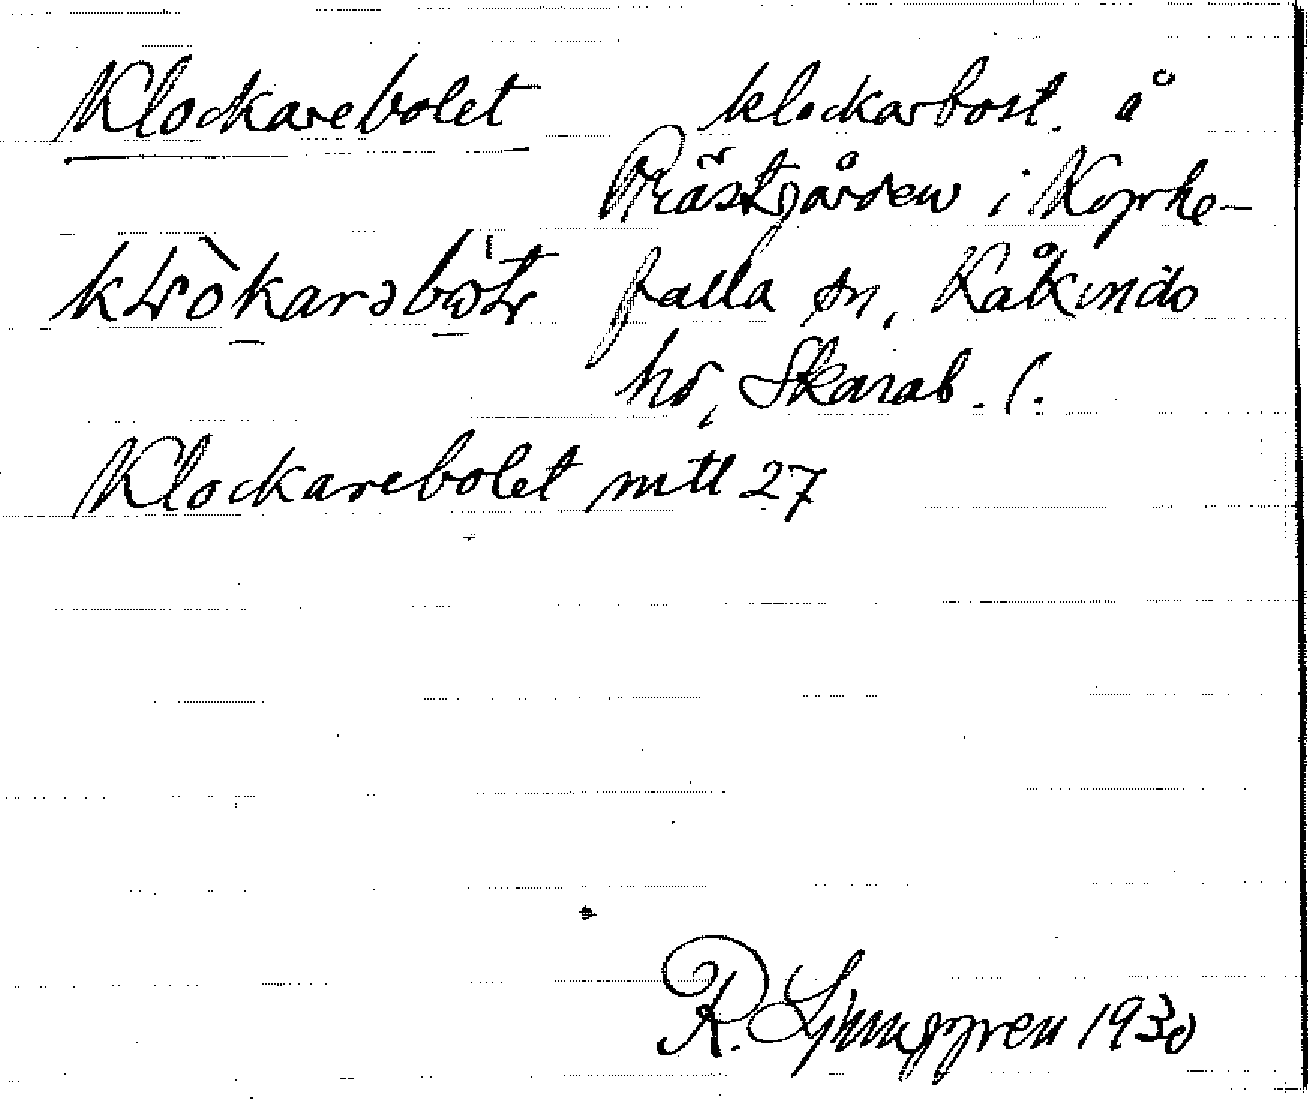 Klockarebolet klockarbost. å
Prästgården i Kyrke-
falla sn, Kåkinds
hd, Skarab. l.
Klockarebolet mtl 27
R. Ljunggren 1930